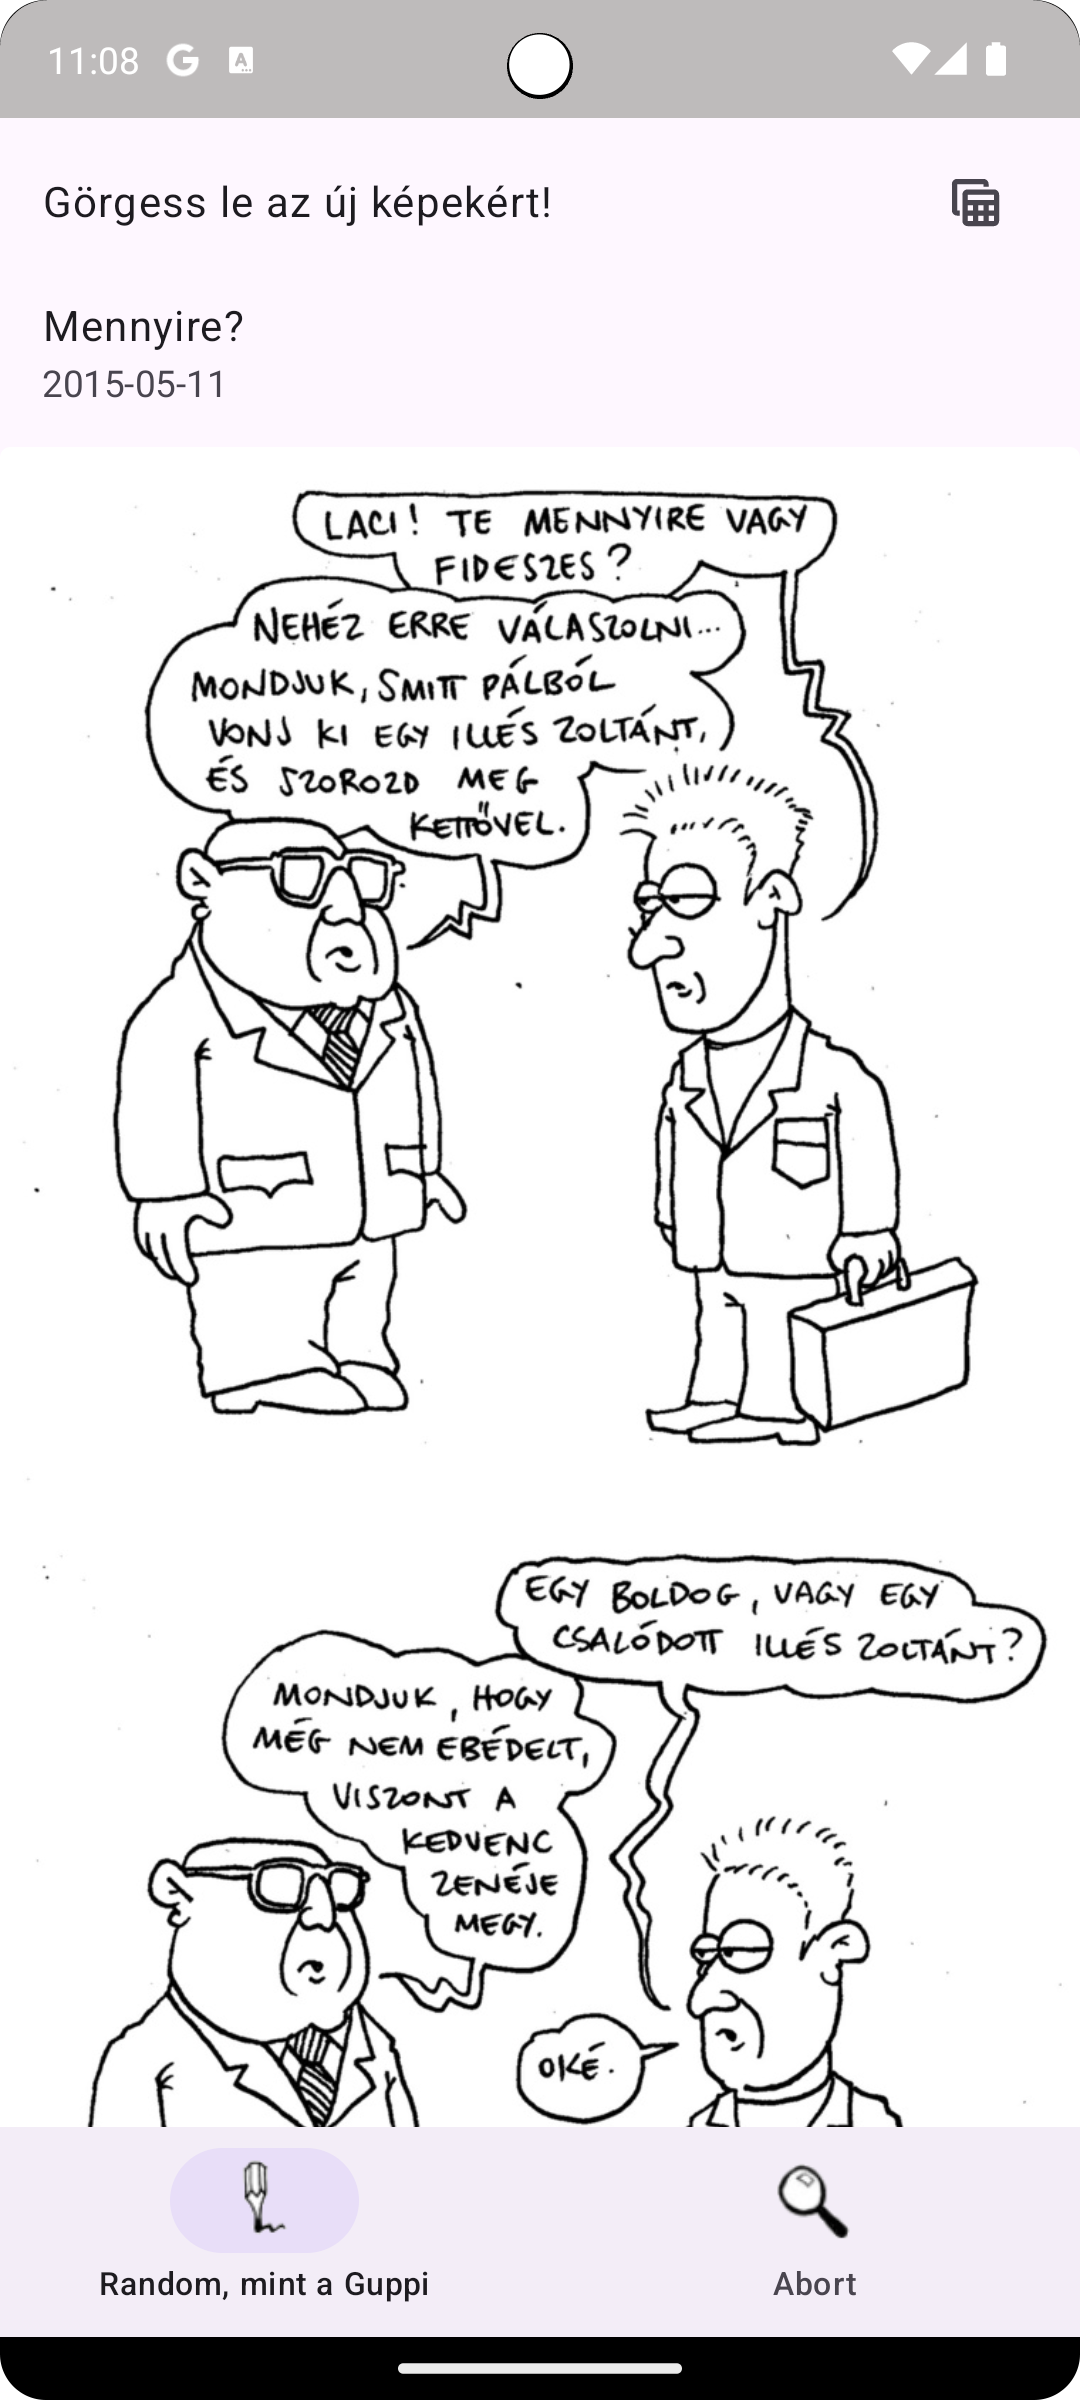 11:08
Görgess le az új képekért!
Mennyire?
2015-05-11
LACI! TE MENNYIRE VAGY
FIDESZES?
NEHÉZ ERRE VÁLASZOLNI...
MONDJUK, SMITT PÁLBÓL
VONJ KI EGY ILLÉS ZOLTÁNT,
ÉS SZOROZD MEG
KETTŐVEL.
EGY BOLDOG, VAGY EGY
CSALÓDOTT ILLÉS ZOLTÁNT?
MONDJUK, HOGY
MÉG NEM EBÉDELT,
VISZONT A
KEDVENC
ZENÉJE
MEGY.
OKÉ.
Random, mint a Guppi
Abort